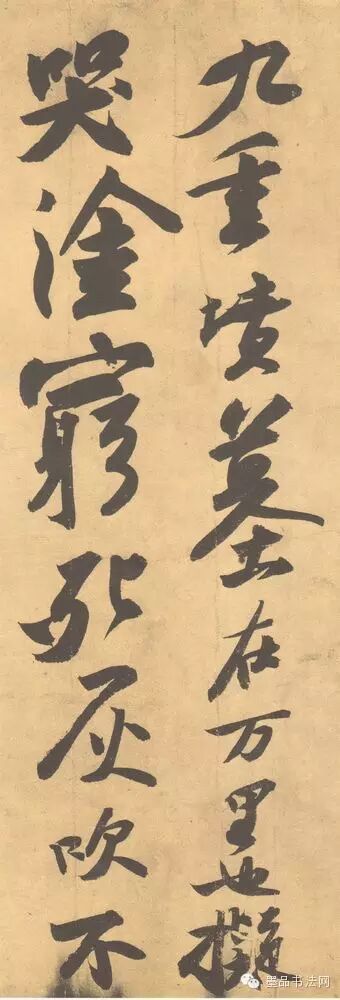 九重墳墓在万里也擬
哭塗窮死灰吹不
墨品书法网